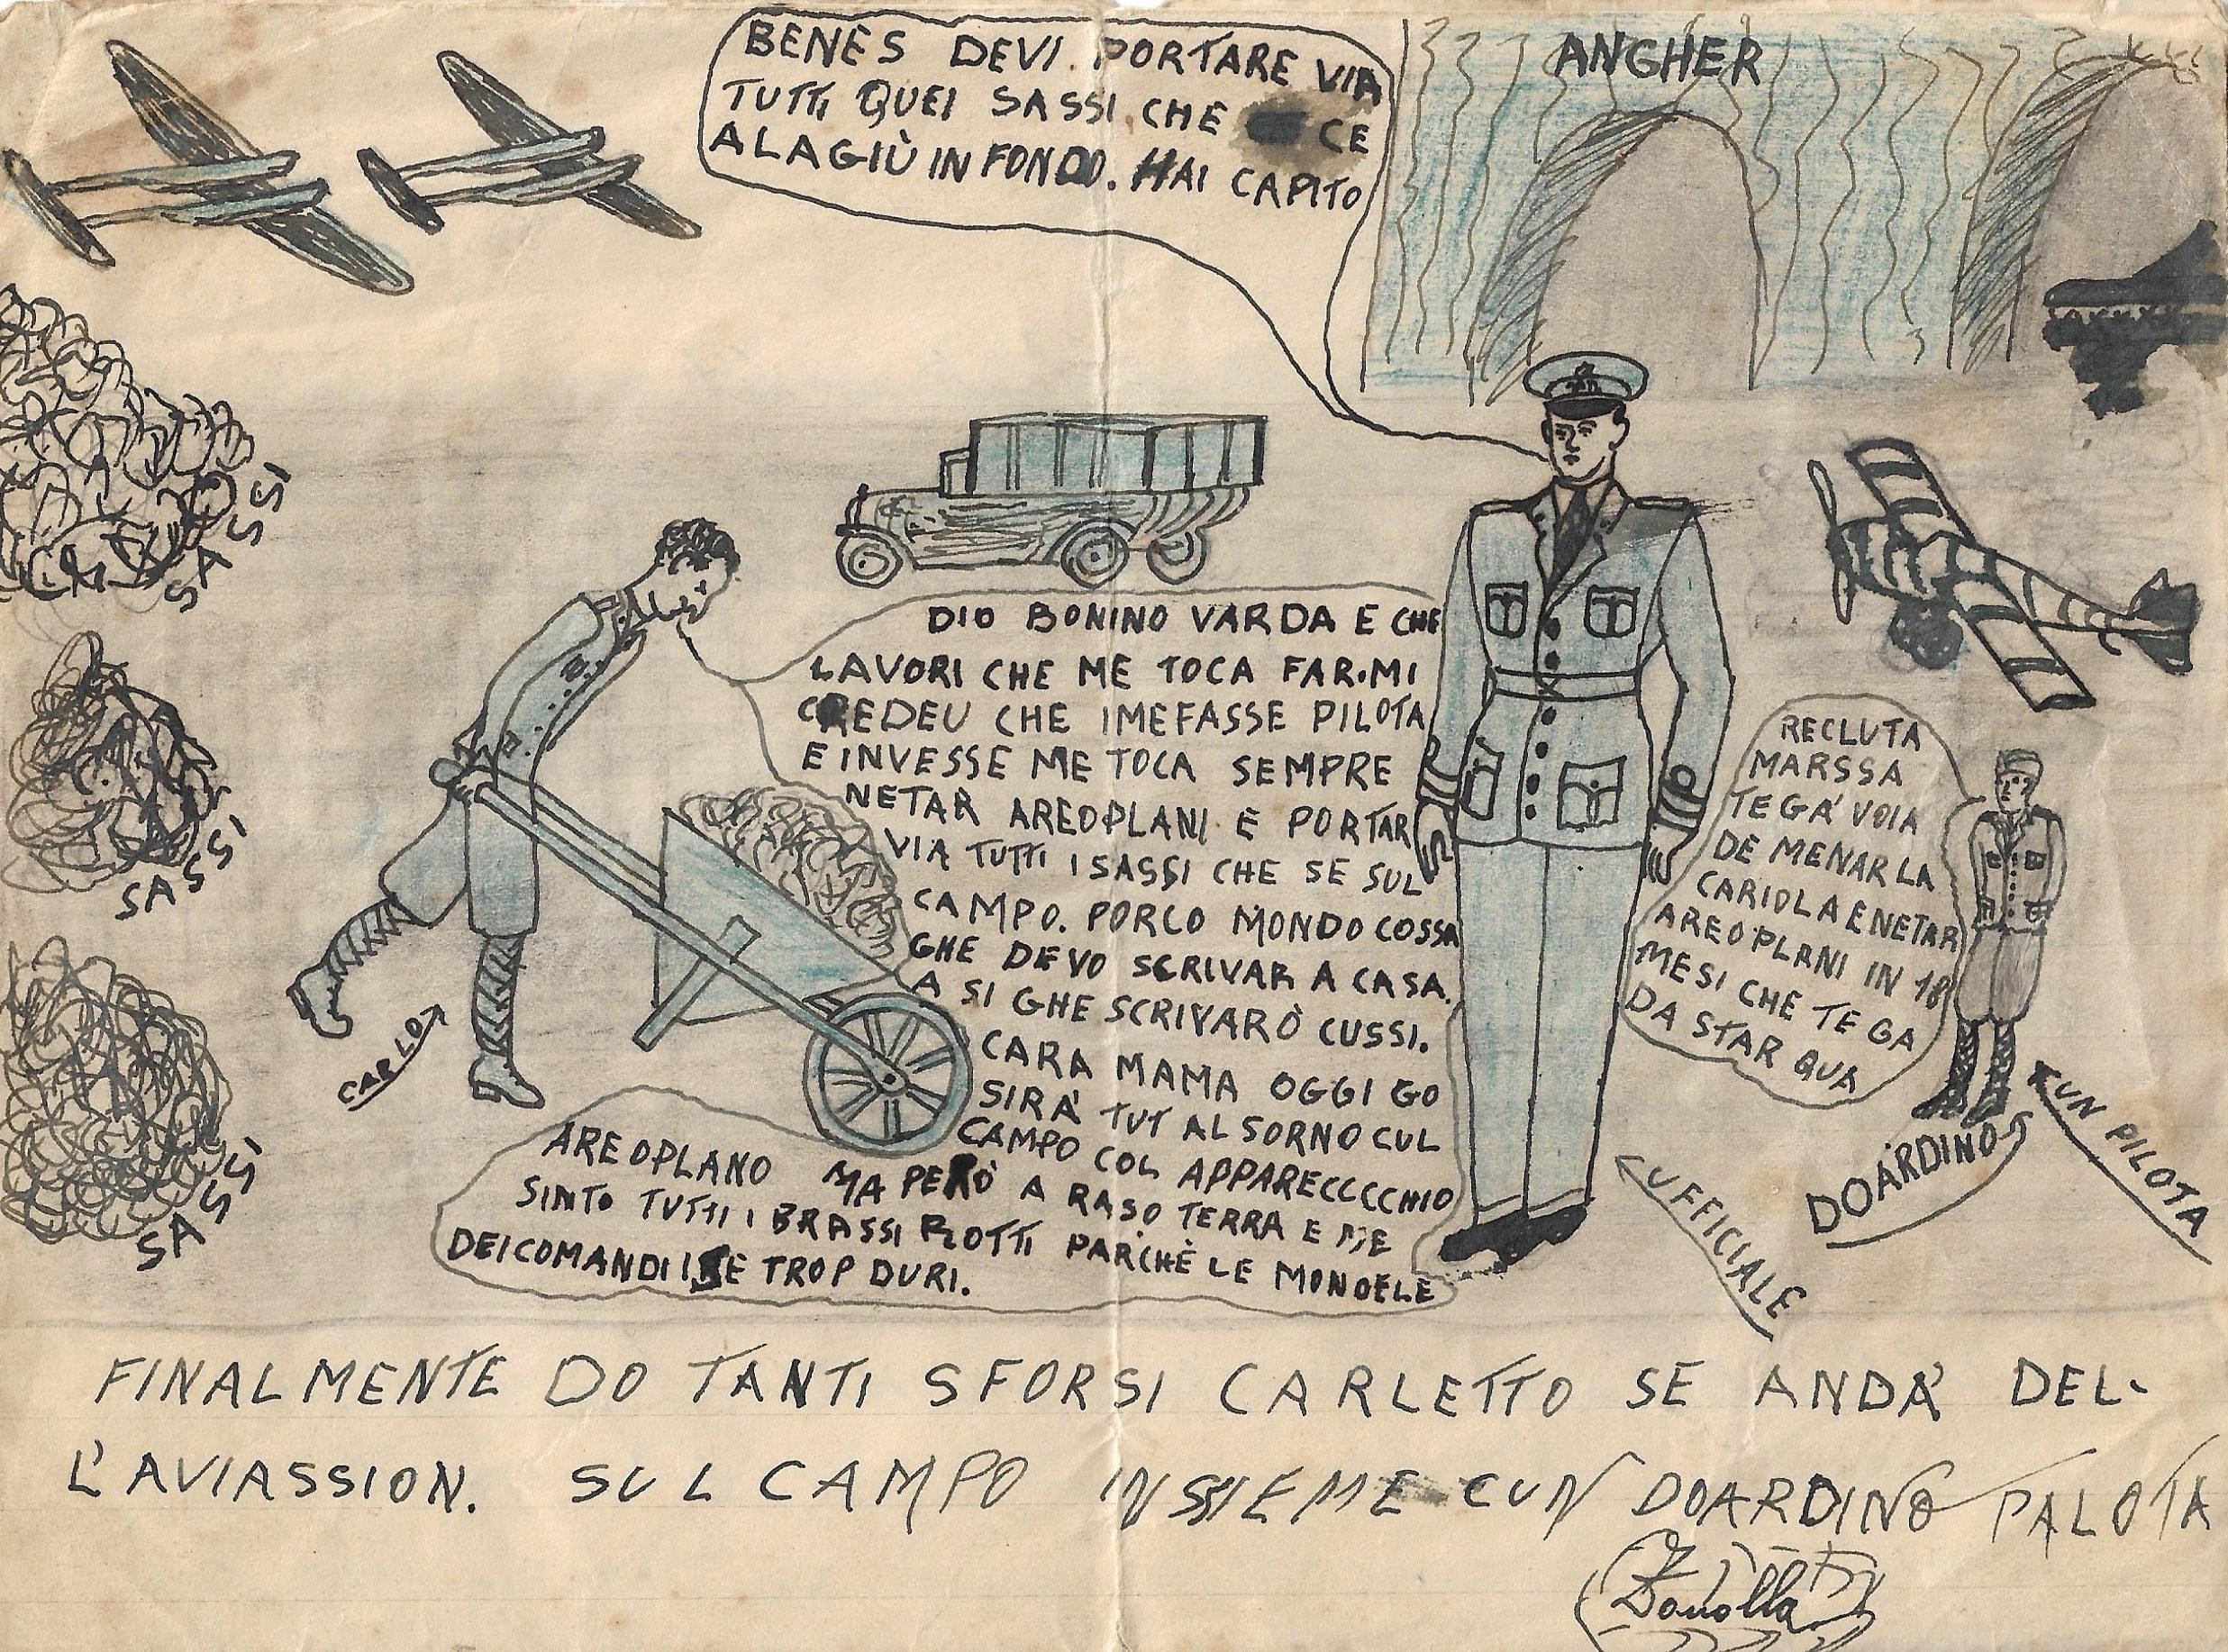 BENES DEVI. PORTARE VIA
TUTTI QUEI SASSI. CHE CE
ALAGIÙ IN FONDO. HAI CAPITO
ANGHER
SASSI
DIO BONINO VARDA E CHE
LAVORI CHE ME TOCA FAR. MI
CREDEU CHE IMEFASSE PILOTA
E INVESSE ME TOCA SEMPRE
NETAR AREOPLANI E PORTAR
VIA TUTTI I SASSI CHE SE SUL
CAMPO. PORCO MONDO COSSA
GHE DEVO SCRIVAR A CASA.
A SI GHE SCRIVARÒ CUSSI.
CARA MAMA OGGI GO
SIRÀ TUT AL SORNO CUL
CAMPO COL APPARECCCCHIO
AREOPLANO MA PERÒ A RASO TERRA E ME
SINTO TUTTI I BRASSI ROTTI PARCHÈ LE MONOELE
DEI COMANDI I SE TROP DURI.
RECLUTA
MARSSA
TE GA' VOIA
DE MENAR LA
CARIOLA E NETAR
AREOPLANI IN 18
MESI CHE TE GA
DA STAR QUA
SASSI
CARLO
SASSI
UN PILOTA
DOARDINO
UFFICIALE
FINALMENTE DO TANTI SFORSI CARLETTO SE ANDA' DEL-
L'AVIASSION. SUL CAMPO INSSIEME CUN DOARDINO PALOTA